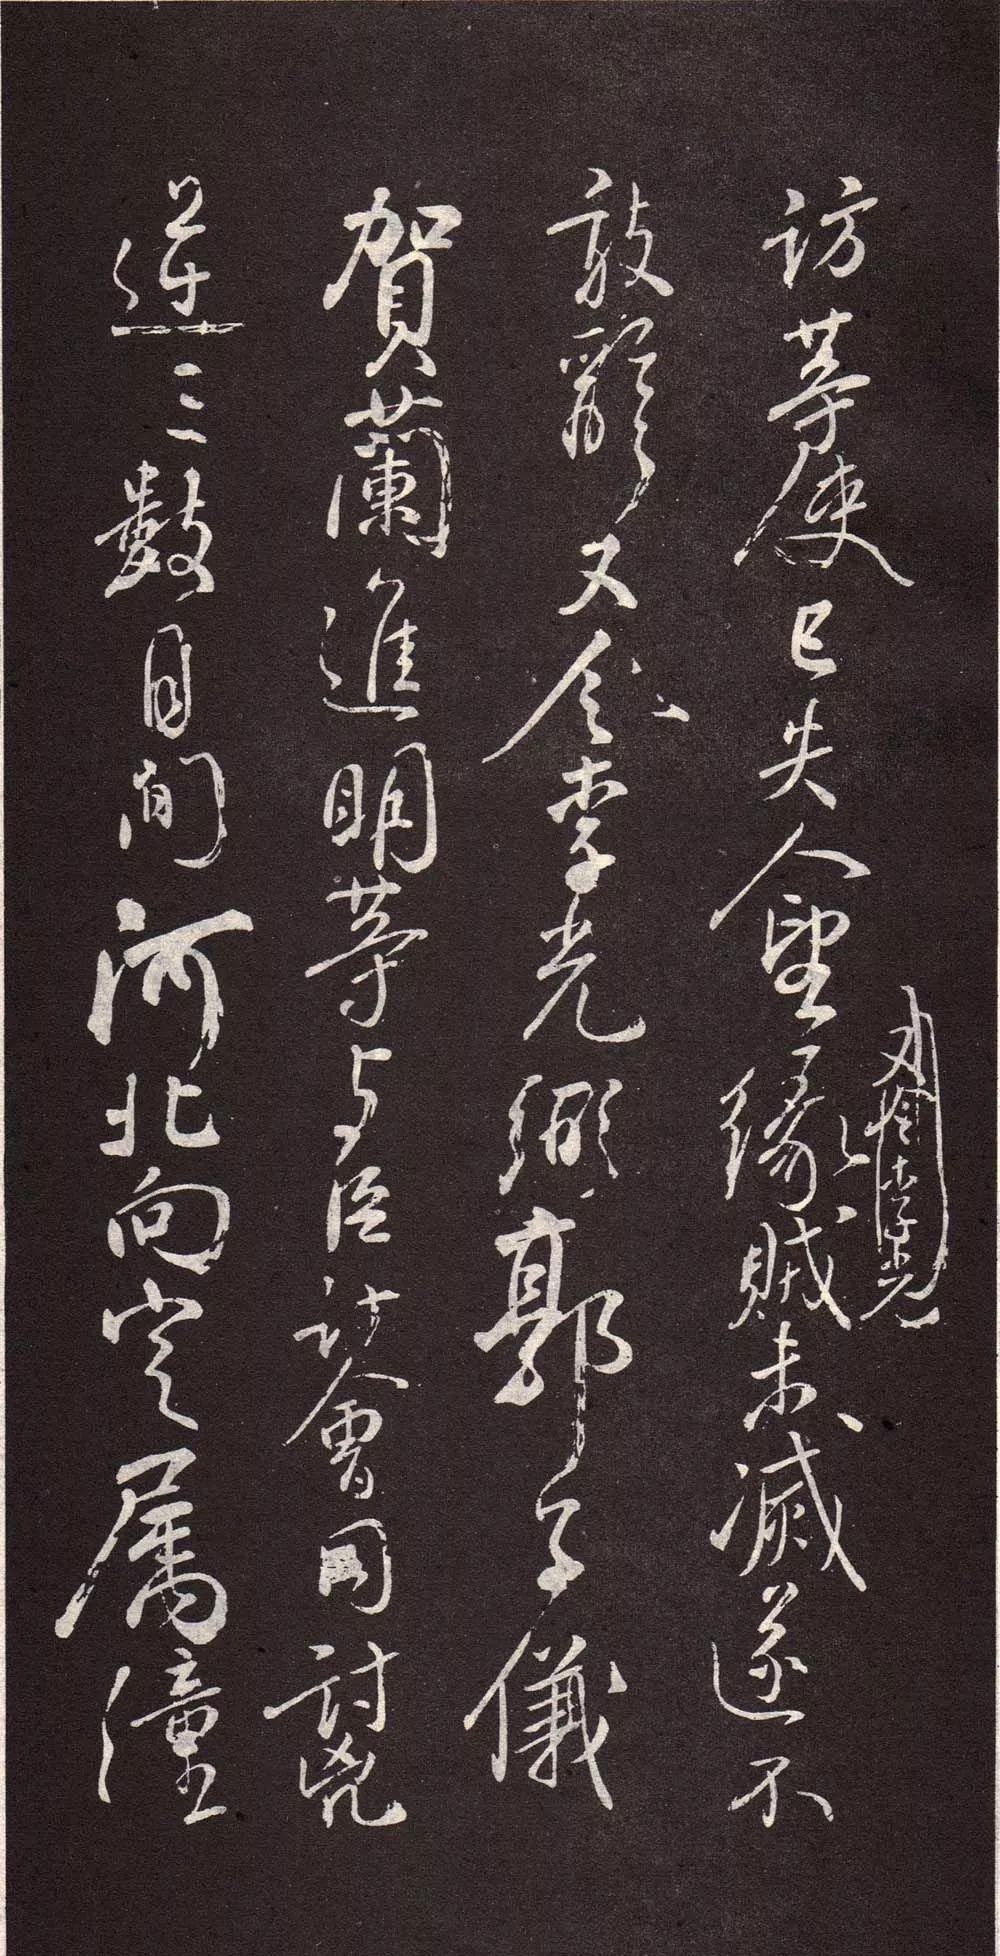 李光
訪等使已失人望緣賊未滅遂不
敢辭又令李光弼郭子儀
賀蘭進明等与臣計會同討兇
逆三數月間河北向定屬潼